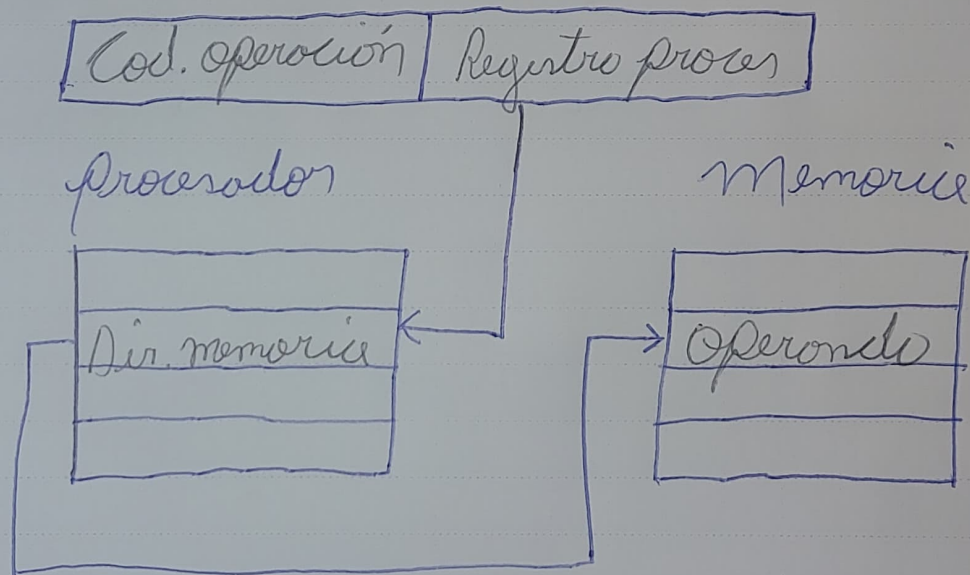 Cod. operación Registro proces
procesador Memoria
Dir. memoria Operando